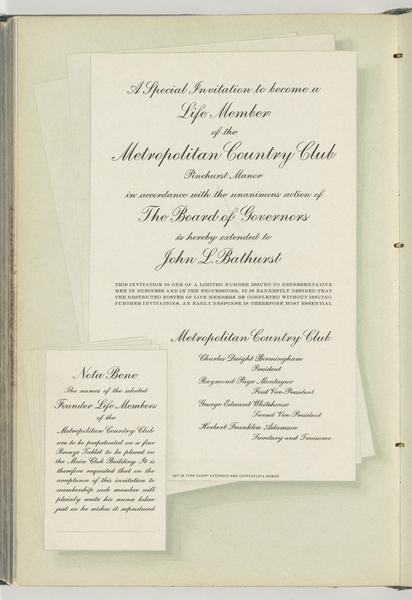 A Special Invitation to become a
Life Member
of the
Metropolitan Country Club
Pinehurst Manor
in accordance with the unanimous action of
The Board of Governors
is hereby extended to
John L. Bathurst
THIS INVITATION IS ONE OF A LIMITED NUMBER ISSUED TO REPRESENTATIVE
MEN IN BUSINESS AND IN THE PROFESSIONS. IT IS EARNESTLY DESIRED THAT
THE RESTRICTED ROSTER OF LIFE MEMBERS BE COMPLETED WITHOUT ISSUING
FURTHER INVITATIONS. AN EARLY RESPONSE IS THEREFORE MOST ESSENTIAL
Metropolitan Country Club
Charles Dwight Birmingham
President
Raymond Page Montague
First Vice-President
George Edward Whitehouse
Second Vice-President
Herbert Franklin Adamson
Secretary and Treasurer
SET IN TYPO SCRIPT EXTENDED AND COPPERPLATE ROMAN
Nota Bene
The names of the selected
Founder Life Members
of the
Metropolitan Country Club
are to be perpetuated on a fine
Bronze Tablet to be placed in
the Main Club Building. It is
therefore requested that on the
acceptance of this invitation to
membership each member will
plainly write his name below
just as he wishes it reproduced